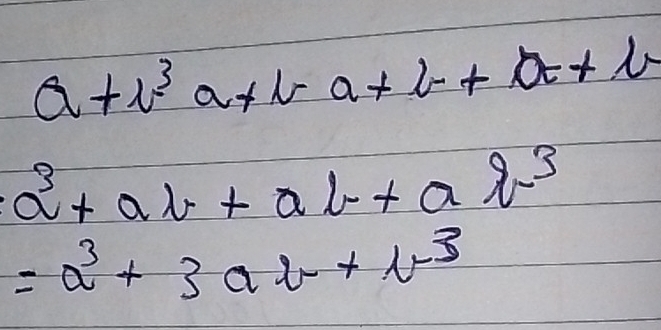 a+b³ a+b a+b+a+b
:a³+ab+ab+a b³
=a³+3ab+b³